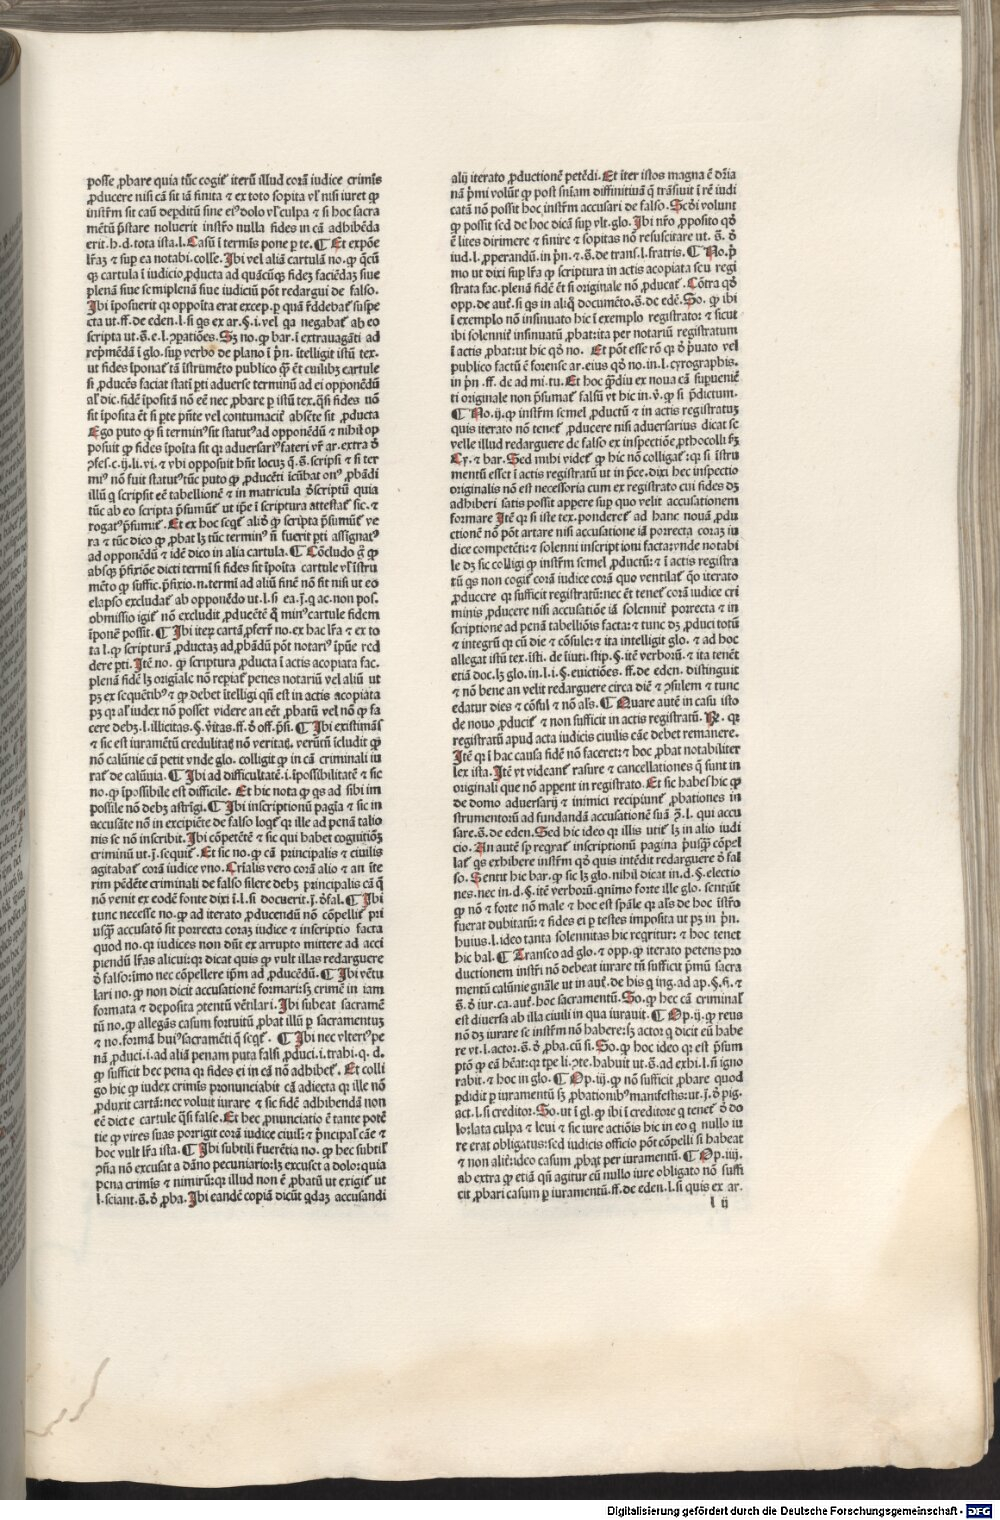 posse ꝓbare quia tūc cogit᷑ iterū illud corā iudice crimīs
ꝓducere nisi cā sit iā finita ⁊ ex toto sopita vl᷑ nisi iuret ꝙ
instr̄m sit casū deꝑditū sine ei⁹ dolo vl᷑ culpa ⁊ si hoc sacra
mētū p̄stare noluerit instr̄o nulla fides in cā adhibēda
erit.h.d.tota ista.l. Casū ī termīs pone ꝑ te. ¶ Et expōe
lr̄aȝ ⁊ sup ea notabi. colle. Ibi vel aliā cartulā no. ꝙ q̄cū
qȝ cartula ī iudicio ꝓducta ad quācūqȝ fideȝ faciēdaȝ siue
plenā siue semiplenā siue iudiciū pōt redargui de falso.
Ibi īposuerit qꝛ opposita erat excep. ꝑ quā r̄ddebat᷑ suspe
cta ut.ff.de eden.l.si q̄s ex ar.§.i. vel qa negabat᷑ ab eo
scripta ut.s̄.e.l.ꝯꝑatiōes. Sȝ no. ꝙ bar. ī extrauagāti ad
rep̄mēdā ī glo. sup verbo de plano ī p̄n. ītelligit istū tex.
ut fides īponat᷑ tā īstrumēto publico q̄ȝ ēt cuilibȝ cartule
si ꝓducēs faciat statī ꝑti aduerse terminū ad ei opponēdū
al᷑ dic. fidē īpositā nō eē nec ꝓbare ꝑ istū tex. q̄si fides nō
sit īposita ēt si ꝑte p̄nte vel contumacit᷑ absēte sit ꝓducta
Ego puto ꝙ si termin⁹ sit statut⁹ ad opponēdū ⁊ nihil op
posuit ꝙ fides īposita sit qꝛ aduersari⁹ fateri vr̄ ar. extra d̄
ꝯfes.c.ij.li.vi. ⁊ vbi opposuit hn̄t locuȝ q̄.s̄.scripsi ⁊ si ter
mi⁹ nō fuit statut⁹ tūc puto ꝙ ꝓducēti īcūbat on⁹ ꝓbādi
illū q scripsit eē tabellionē ⁊ in matricula d̄scriptū quia
tūc ab eo scripta p̄sumūt᷑ ut ip̄e ī scriptura attestat᷑ sic.⁊
rogat⁹ p̄sumit᷑. Et ex hoc seqt᷑ aliqd̄ ꝙ scripta p̄sumūt᷑ ve
ra ⁊ tūc dico ꝙ ꝓbat lȝ tūc termin⁹ ñ fuerit ꝑti assignat⁹
ad opponēdū ⁊ idē dico in alia cartula. ¶ Cōcludo g̊ ꝙ
absqȝ p̄fixiōe dicti termī si fides sit īposita cartule vl᷑ īstru
mēto ꝙ suffic. p̄fixio.n.termī ad aliū finē nō fit nisi ut eo
elapso excludat᷑ ab opponēdo ut.l.si ea.j.q ac.non pos.
obmissio igit᷑ nō excludit ꝓducētē qd̄ min⁹ cartule fidem
īponē possit. ¶ Ibi iteꝝ cartā ꝓferr̄ no. ex hac lr̄a ⁊ ex to
ta l. ꝙ scripturā ꝓductaȝ ad ꝓbādū pōt notari⁹ īpūe red
dere ꝑti. Itē no. ꝙ scriptura ꝓducta ī actis acopiata fac.
plenā fidē lȝ origīale nō repiat᷑ penes notariū vel aliū ut
pȝ ex seq̄ntib⁹ ⁊ ꝙ debet ītelligi qn̄ est in actis acopiata
pȝ qꝛ al᷑ iudex nō posset videre an eēt ꝓbatū vel nō ꝙ fa
cere debȝ.l.illicitas.§.v̄itas.ff.d̄ off.p̄si. ¶ Ibi existimās
⁊ sic est iuramētū credulitatȝ nō veritatȝ. verūtn̄ īcludit ꝙ
nō calūnie cā petit vnde glo. colligit ꝙ in cā criminali iu
rat᷑ de calūnia. ¶ Ibi ad difficultatē.i.īpossibilitatē ⁊ sic
no. ꝙ īpossibile est difficile. Et hic nota ꝙ q̄s ad sibi im
possile nō debȝ astrīgi. ¶ Ibi inscriptionū pagīa ⁊ sic in
accusāte nō in excipiēte de falso loqt᷑ qꝛ ille ad penā talio
nis se nō inscribit. Ibi cōpetētē ⁊ sic qui habet cognitiōȝ
criminū ut.j.sequit᷑. Et sic no. ꝙ cā principalis ⁊ ciuilis
agitabat᷑ corā iudice vno. Crīalis vero corā alio ⁊ an īte
rim pēdēte criminali de falso silere debȝ principalis cā q̄
nō venit ex eodē fonte dixi ī.l.si docuerit.j.d̄.fal. ¶ Ibi
tunc necesse no. ꝙ ad iterato ꝓducendū nō cōpellit᷑ pri
usqȝ accusatō sit porrecta coraȝ iudice ⁊ inscriptio facta
quod no. qꝛ iudices non dn̄t ex arrupto mittere ad acci
piendū lr̄as alicui: qꝛ dicat quis ꝙ vult illas redarguere
d̄ falso: īmo nec cōpellere ip̄m ad ꝓducēdū. ¶ Ibi vētu
lari no. ꝙ non dicit accusationē formari: sȝ crimē in iam
formata ⁊ deposita ꝯtentū vētilari. Ibi subeat sacramē
tū no. ꝙ allegās casum fortuitū ꝓbat illū ꝑ sacramentuȝ
⁊ no. formā hui⁹ sacramēti q̄ seqt᷑. ¶ Ibi nec vlteri⁹ pe
nā ꝓduci.i.ad aliā penam puta falsi ꝓduci.i.trahi.q.d.
ꝙ sufficit hec pena qꝛ fides ei in cā nō adhibet᷑. Et colli
go hic ꝙ iudex crimīs pronunciabit cā adiecta qꝛ ille nō
ꝓduxit cartā: nec voluit iurare ⁊ sic fidē adhibendā non
eē dicte cartule q̄si false. Et hec ꝓnunciatio ē tante potē
tie ꝙ vires suas porrigit corā iudice ciuili: ⁊ p̄ncipal᷑ cāe ⁊
hoc vult lr̄a ista. ¶ Ibi subtili r̄uerētia no. ꝙ hec subtil᷑
ꝯsīa nō excusat a dāno pecuniario: lȝ excuset a dolo: quia
pena crimīs ⁊ nimirū: qꝛ illud non ē ꝓbatū ut exigit᷑ ut
l.sciant.s̄.d̄ ꝓba. Ibi eandē copiā dicūt qdaȝ accusandi
alij iterato ꝓductionē petēdi. Et iter istos magna ē dr̄ia
nā p̄mi volūt ꝙ post snīam diffinitiuā q̄ trāsiuit ī rē iudi
catā nō possit hoc instr̄m accusari de falso. Scd̄i volunt
ꝙ possit sed de hoc dicā sup vlt.glo. Ibi nr̄o ꝓposito qd̄
ē lites dirimere ⁊ finire ⁊ sopitas nō resuscitare ut.s̄.d̄
iud.l.ꝓperandū.in p̄n.⁊.s̄.de trans.l.fratris. ¶ No. p̄
mo ut dixi sup lr̄a ꝙ scriptura in actis acopiata seu regi
strata fac. plenā fidē ēt si originale nō ꝓducat᷑. Cōtra qd̄
opp.de aut.si qs in aliq̄ documēto.s̄.de edē. So. ꝙ ibi
ī exemplo nō insinuato hic ī exemplo registrato: ⁊ sicut
ibi solennit᷑ insinuatū ꝓbat: ita per notariū registratum
ī actis ꝓbat: ut hic qd̄ no. Et pōt esse rō qꝛ d̄ p̄uato vel
publico factū ē forense ar. eius qd̄ no. in.l.cyrographis.
in p̄n.ff.de ad mi.tu. Et hoc q̄ȝdiu ex noua cā supueniē
ti originale non p̄sumat᷑ falsū vt hic in.v̄. ꝙ si p̄dictum.
¶ No.ij. ꝙ instr̄m semel ꝓductū ⁊ in actis registratuȝ
quis iterato nō tenet᷑ ꝓducere nisi aduersarius dicat se
velle illud redarguere de falso ex inspectiōe ꝓthocolli sȝ
Cy.⁊ bar. Sed mihi videt᷑ ꝙ hic nō colligat᷑: qꝛ si īstru
mentū esset ī actis registratū ut in p̄ce. dixi hec inspectio
originalis nō est necessoria cum ex registrato cui fides dȝ
adhiberi satis possit appere sup quo velit accusationem
formare Itē qꝛ si iste tex. ponderet᷑ ad hanc nouā ꝓdu
ctionē nō pōt artare nisi accusatione iā porrecta coraȝ iu
dice competēti: ⁊ solenni inscriptioni facta: vnde notabi
le dȝ sic colligi ꝙ instr̄m semel ꝓductū: ⁊ ī actis registra
tū qs non cogit᷑ corā iudice corā quo ventilat᷑ qō iterato
ꝓducere qꝛ sufficit registratū: nec ēt tenet᷑ corā iudice cri
minis ꝓducere nisi accusatiōe iā solennit᷑ porrecta ⁊ in
scriptione ad penā tabelliōis facta: ⁊ tunc dȝ ꝓduci totū
⁊ integrū qꝛ cū die ⁊ cōsule: ⁊ ita intelligit glo. ⁊ ad hoc
allegat istū tex. isti. de īuti.stip.§.itē verborū.⁊ ita tenēt
etiā doc. lȝ glo.in.l.i.§.euictiōes.ff.de eden. distinguit
⁊ nō bene an velit redarguere circa diē ⁊ ꝯsulem ⁊ tunc
edatur dies ⁊ cōsul ⁊ nō al᷑s. ¶ Quare autē in casu isto
de nouo ꝓducit᷑ ⁊ non sufficit in actis registratū. ꝶ. qꝛ
registratū apud acta iudicis ciuilis eāe debet remanere.
Itē qꝛ ī hac causa fidē nō faceret: ⁊ hoc ꝓbat notabiliter
lex ista. Itē vt videant᷑ rasure ⁊ cancellationes q̄ sunt in
originali que nō appent in registrato. Et sic habes hic ꝙ
de domo aduersarij ⁊ inimici recipiunt᷑ ꝓbationes in
strumentorū ad fundandā accusationē suā ꝯ̄.l.qui accu
sare.s̄.de eden. Sed hic ideo qꝛ illis utit᷑ lȝ in alio iudi
cio. An autē sp reqrat᷑ inscriptionū pagina p̄usqȝ cōpel
lat᷑ qs exhibere instr̄m qd̄ quis intēdit redarguere d̄ fal
so. Sentit hic bar. ꝙ sic lȝ glo. nihil dicat in.d.§.electio
nes.nec in.d.§.itē verborū. qnimo forte ille glo. sentiūt
ꝙ nō ⁊ forte nō male ⁊ hoc est spāle qꝛ al᷑s de hoc īstr̄o
fuerat dubitatū: ⁊ fides ei ꝑ testes imposita ut pȝ in p̄n.
huius.l.ideo tanta solennitas hic reqritur: ⁊ hoc tenet
hic bal. ¶ Transeo ad glo. ⁊ opp. ꝙ iterato petens pro
ductionem instr̄i nō debeat iurare tn̄ sufficit p̄mū sacra
mentū calūnie gnāle ut in aut.de his q ing.ad ap.§.fi.⁊
s̄.d̄ iur.ca.aut.hoc sacramentū. So. ꝙ hec cā criminal᷑
est diuersa ab illa ciuili in qua iurauit. ¶ Op.ij. ꝙ reus
nō dȝ iurare se instr̄m nō habere: sȝ actor q dicit eū habe
re vt.l.actor.s̄.d̄ ꝓba.cū si. So. ꝙ hoc ideo qꝛ est p̄sum
ptō ꝙ eā hēat: qꝛ tpe li.ꝯte.habuit ut.s̄.ad exhi.l.si igno
rabit.⁊ hoc in glo. ¶ Op.iij. ꝙ nō sufficit ꝓbare quod
ꝑdidit ꝑ iuramentū sȝ ꝓbationib⁹ manifestis: ut.j.d̄ pig.
act.l.si creditor. So. ut ī gl. ꝙ ibi ī creditore q tenet᷑ d̄ do
lo: lata culpa ⁊ leui ⁊ sic iure actiōis hic in eo q nullo iu
re erat obligatus: sed iudicis officio pōt cōpelli si habeat
⁊ non alit᷑: ideo casum ꝓbat ꝑ iuramentū. ¶ Op.iiij.
ab extra ꝙ etiā qn̄ agitur cū nullo iure obligato nō suffi
cit ꝓbari casum ꝑ iuramentū.ff.de eden.l.si quis ex ar.
l ij
Digitalisierung gefördert durch die Deutsche Forschungsgemeinschaft - DFG